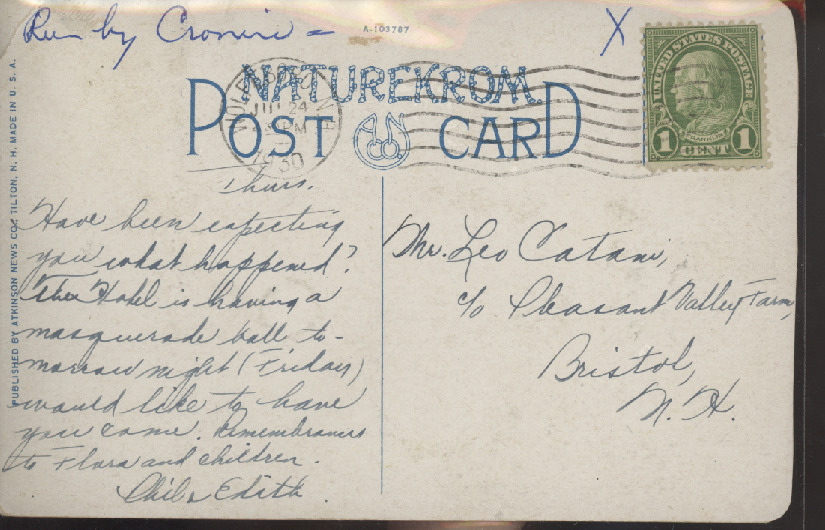 Run by Cronin =
A-103787
X
NATUREKROM
POST CARD
JUL 24
M
1930
UNITED STATES POSTAGE
FRANKLIN
1 CENT 1
PUBLISHED BY ATKINSON NEWS CO., TILTON, N. H. MADE IN U. S. A.
Thurs.
Have been expecting
you what happened?
The Hotel is having a
masquerade ball to-
morrow night (Friday)
would like to have
you come. Remembrances
to Flora and children.
Edith.
Mr. Leo Catani,
c/o Pleasant Valley Farm,
Bristol,
N. H.